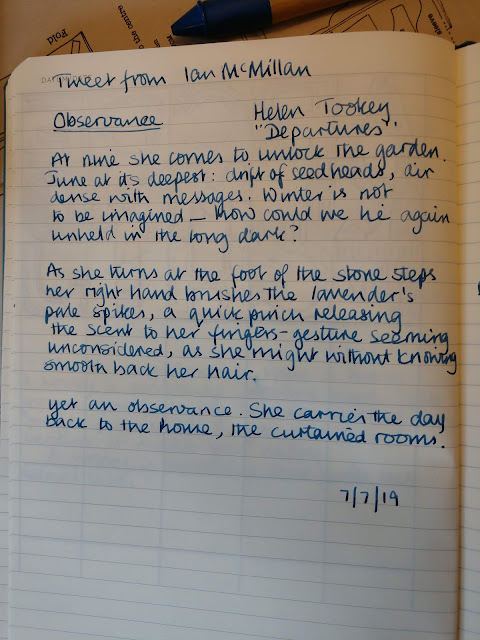 Fold
to the centre
Tweet from Ian McMillan
Observance
Helen Tookey
"Departures".
At nine she comes to unlock the garden.
June at its deepest: drift of seedheads, air
dense with messages. Winter is not
to be imagined – how could we lie again
unheld in the long dark?
As she turns at the foot of the stone steps
her right hand brushes the lavender's
pale spikes, a quick pinch releasing
the scent to her fingers – gesture seeming
unconsidered, as she might without knowing
smooth back her hair.
yet an observance. She carries the day
back to the house, the curtained rooms.
7/7/19